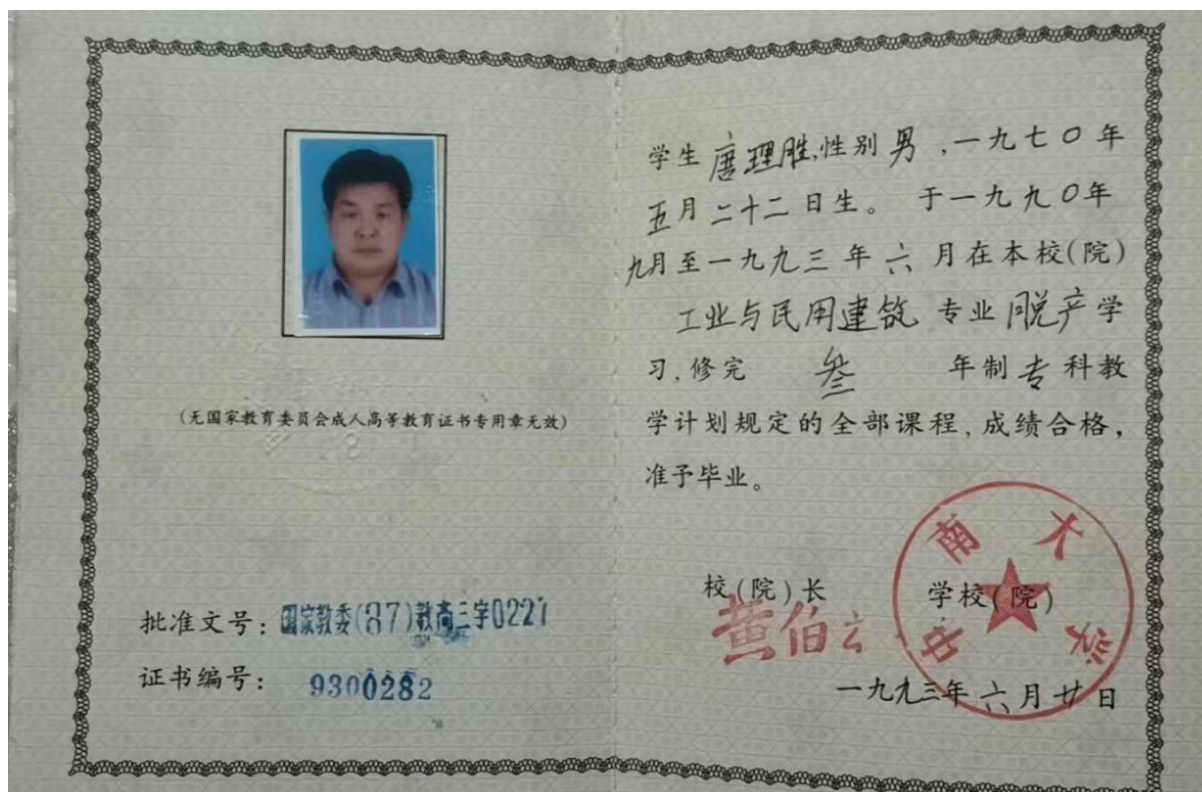 (无国家教育委员会成人高等教育证书专用章无效)
批准文号：国家教委(87)教高三字0227
证书编号： 9300282
学生唐理胜,性别男,一九七〇年
五月二十二日生。于一九九〇年
九月至一九九三年六月在本校(院)
工业与民用建筑专业脱产学
习,修完叁年制专科教
学计划规定的全部课程,成绩合格,
准予毕业。
校(院)长
黄伯云
学校(院)
中南大学
一九九三年六月廿日